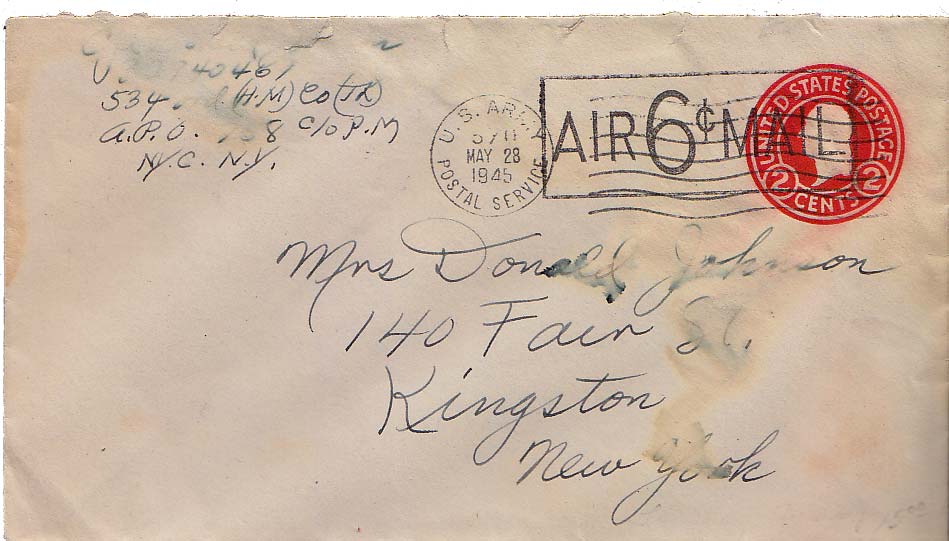 467
534 (H.M) Co
A.P.O. 8 C/o P.M
N.Y.C. N.Y.
U.S. ARMY
MAY 28
1945
POSTAL SERVICE
AIR 6¢ MAIL
UNITED STATES POSTAGE
2 2
CENTS
Mrs Donald Johnson
140 Fair St.
Kingston
New York